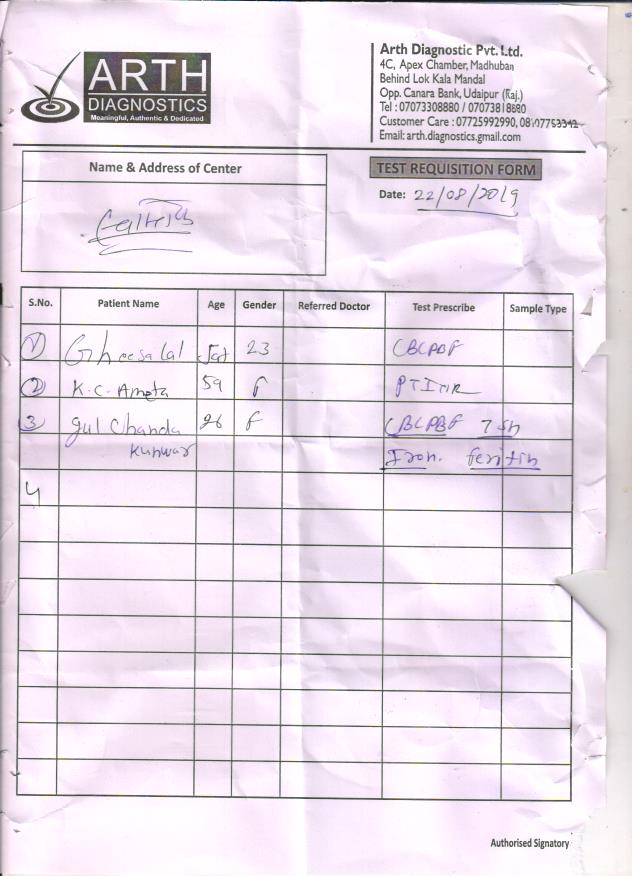 ARTH
DIAGNOSTICS
Meaningful, Authentic & Dedicated
Arth Diagnostic Pvt. Ltd.
4C, Apex Chamber, Madhuban
Behind Lok Kala Mandal
Opp. Canara Bank, Udaipur (Raj.)
Tel : 07073308880 / 07073818680
Customer Care : 07725992990,
Email: arth.diagnostics.gmail.com
Name & Address of Center
TEST REQUISITION FORM
Date: 22/08/2019
S.No. Patient Name Age Gender Referred Doctor Test Prescribe Sample Type
1 Gheesalal Jat 23 CBCPBF
2 K.C. Ameta 59 F PTINR
3 Gul Chanda 26 F CBCPBF TSh
Kunwar Iron. feritin
4
Authorised Signatory